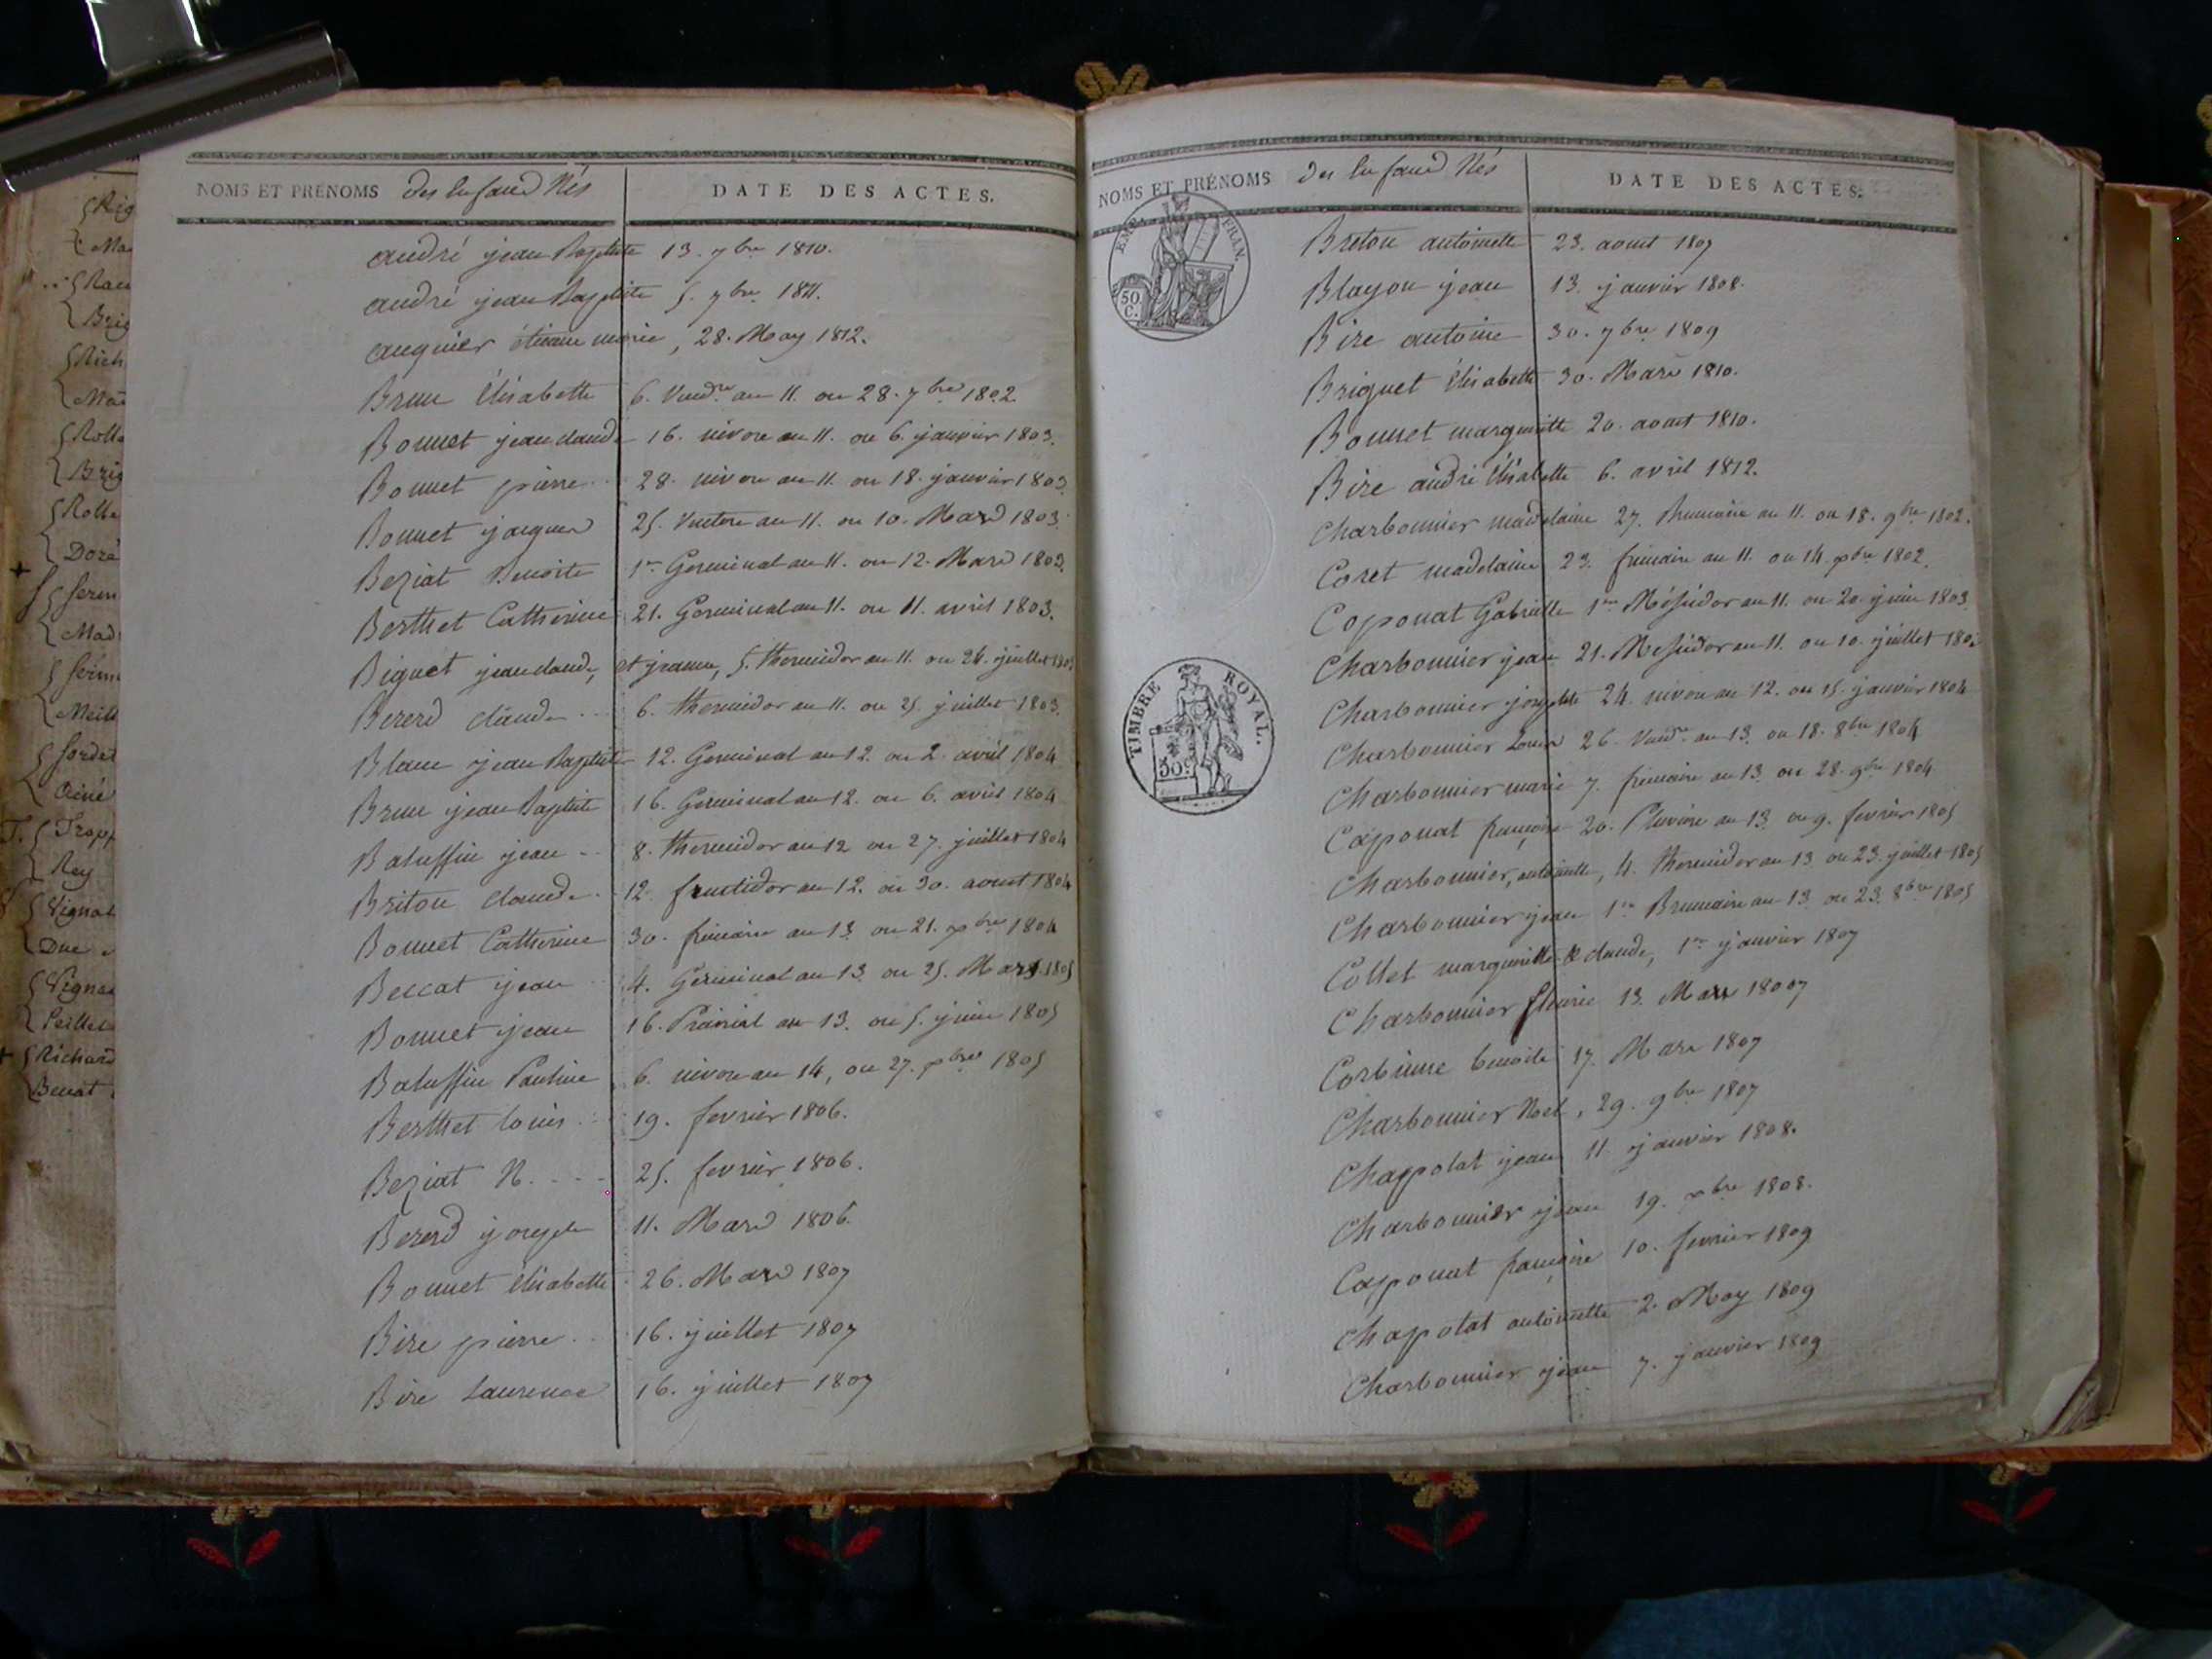 Rig
Ma
Rau
Brig
Rich
Mai
Rolla
Brig
Rolle
Doré
Serm
Mad
Serm
Meill
Sordet
Aimé
T. Trop
Rey
Vignat
Duc
Vigna
Peillet
Richard
Benat
NOMS ET PRÉNOMS des Enfans Nés
DATE DES ACTES.
andré jean Baptiste 13. 7bre 1810.
andré jean Baptiste 5. 7bre 1811.
auguier étienne marie, 28. May 1812.
Brun Elisabette 6. Vendre an 11. ou 28. 7bre 1802.
Bonnet jean claude 16. nivose an 11. ou 6. janvier 1803.
Bonnet pierre 28. nivose an 11. ou 18. janvier 1803
Bonnet jacques 25. Ventose an 11. ou 10. Mars 1803.
Beziat Benoite 1er Germinal an 11. ou 12. Mars 1803.
Berthet Catherine 21. Germinal an 11. ou 11. avril 1803.
Biguet jean claude, et jeanne, 5. thermidor an 11. ou 24. juillet 1803
Bererd claude 6. thermidor an 11. ou 25. juillet 1803.
Blanc jean Baptiste 12. Germinal an 12. ou 2. avril 1804
Brun jean Baptiste 16. Germinal an 12. ou 6. avril 1804
Baluffin jean 8. thermidor an 12 ou 27. juillet 1804
Briton claude 12. fructidor an 12. ou 30. aoust 1804
Bonnet Catherine 30. frimaire an 13. ou 21. xbre 1804
Beccat jean 4. Germinal an 13. ou 25. Mars 1805
Bonnet jean 16. Prairial an 13. ou 5. juin 1805
Baluffin Pauline 6. nivose an 14, ou 27. xbre 1805
Berthet louis 19. fevrier 1806.
Beziat N. 25. fevrier 1806.
Bererd joseph 11. Mars 1806.
Bonnet Elisabette 26. Mars 1807
Bire pierre 16. juillet 1807
Bire Laurence 16. juillet 1807
NOMS ET PRÉNOMS des Enfans Nés
DATE DES ACTES.
EMP. FRAN.
50 C.
Breton antoinette 23. aout 1807
Blayon jean 13. janvier 1808.
Bire antoine 30. 7bre 1809
Briguet Elisabette 30. Mars 1810.
Bonnet margueritte 20. aout 1810.
Bire andré Elisabette 6. avril 1812.
Charbonnier madelaine 27. Brumaire an 11. ou 18. 9bre 1802.
Coret madelaine 23. frimaire an 11. ou 14. xbre 1802.
Coponat Gabrielle 1er Messidor an 11. ou 20. juin 1803
Charbonnier jean 21. Messidor an 11. ou 10. juillet 1803
TIMBRE ROYAL.
50 c
Charbonnier josephte 24. nivose an 12. ou 15. janvier 1804
Charbonnier Louis 26. Vendre an 13. ou 18. 8bre 1804
Charbonnier marie 7. frimaire an 13. ou 28. 9bre 1804
Caponat françoise 20. Pluviose an 13. ou 9. fevrier 1805
Charbonnier, antoinette, 4. thermidor an 13 ou 23. juillet 1805
Charbonnier jean 1er Brumaire an 13. ou 23. 8bre 1805
Collet margueritte & claude, 1er janvier 1807
Charbonnier fleurie 13. Mars 18007
Corbinne benoite 17. Mars 1807
Charbonnier Noel, 29. 9bre 1807
Chappolat jean 11. janvier 1808.
Charbonnier jean 19. xbre 1808.
Caponat françoise 10. fevrier 1809
Chapolat antoinette 2. May 1809
Charbonnier jean 7. janvier 1809